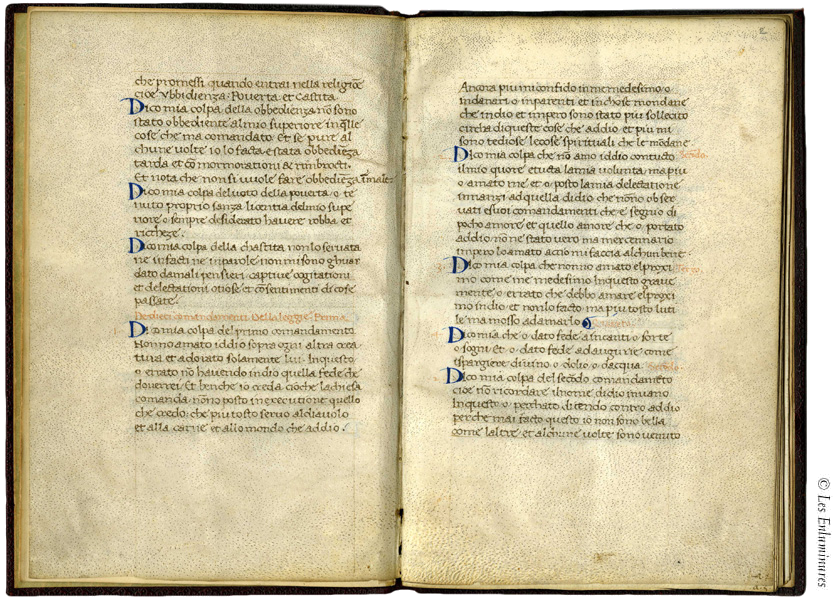 che promessi quando entrai nella religiōe
cioe Vbbidienza. Pouerta. et Castita.
Dico mia colpa della obbediēza. nō sono
stato obbediente al mio superiore in q̄lle
cose che ma comandato. Et se pure al
chune uolte io lo facta e stata obbediēza
tarda et cō mormorationi & rimbrocti.
Et nota che non si uuole fare obbediēza
Dico mia colpa del uoto della pouerta. o te
nuto proprio sanza licentia del mio supe
riore. o sempre desiderato hauere robba et
richeze.
Dico mia colpa della chastita non lo seruata
ne in facti ne in parole. non mi sono ghuar
dato da mali pensieri. captiue cogitationi
et delectationi otiose et cōsentimenti di cose
passate.
De dieci comandamenti della leggie. Prima
1. Dico mia colpa del primo comandamento
Non no amato iddio sopra ogni altra crea
tura et adorato solamente lui. In questo
o errato nō hauendo in dio quella fede che
douerrei. Et benche io creda cio che la chiesa
comanda. non o posto in executione quello
che credo. che piu tosto seruo al diauolo
et alla carne et allo mondo che addio.
2
Ancora piu mi confido in me medesimo. o
in danari. o in parenti et in chose mondane
che in dio et impero sono stato piu sollecito
circha di queste cose che addio. et piu mi
sono tediose le cose spirituali che le mōdane
Dico mia colpa che nō amo iddio con tucto
il mio quore et tucta la mia uolunta. ma piu
o amato me et o posto la mia delectatione
innanzi ad quella di dio che non no obser
uati e suoi comandamenti che e segnio di
pocho amore et quello amore che o portato
addio. nō ne stato uero ma mercennario
impero lo amato accio mi faccia alchun bene.
3. Dico mia colpa che non no amato el proxi Terzo.
mo come me medesimo In questo graue
mente o errato che debbo amare el proxi
mo in dio et non lo facto. ma piu tosto luti
le ma mosso ad amarlo
Dico mia che o dato fede a incanti o sorte
o sogni. et o dato fede ad augurie come
ispargiere di uino. o dolio. o dacqua.
Dico mia colpa del secōdo comandamēto
cioe nō ricordare il nome di dio in uano
In questo o pechato dicendo contro addio
perche mai facto questo io non sono bella
come laltre. et alchune uolte sono uenuto
© Les Enluminures